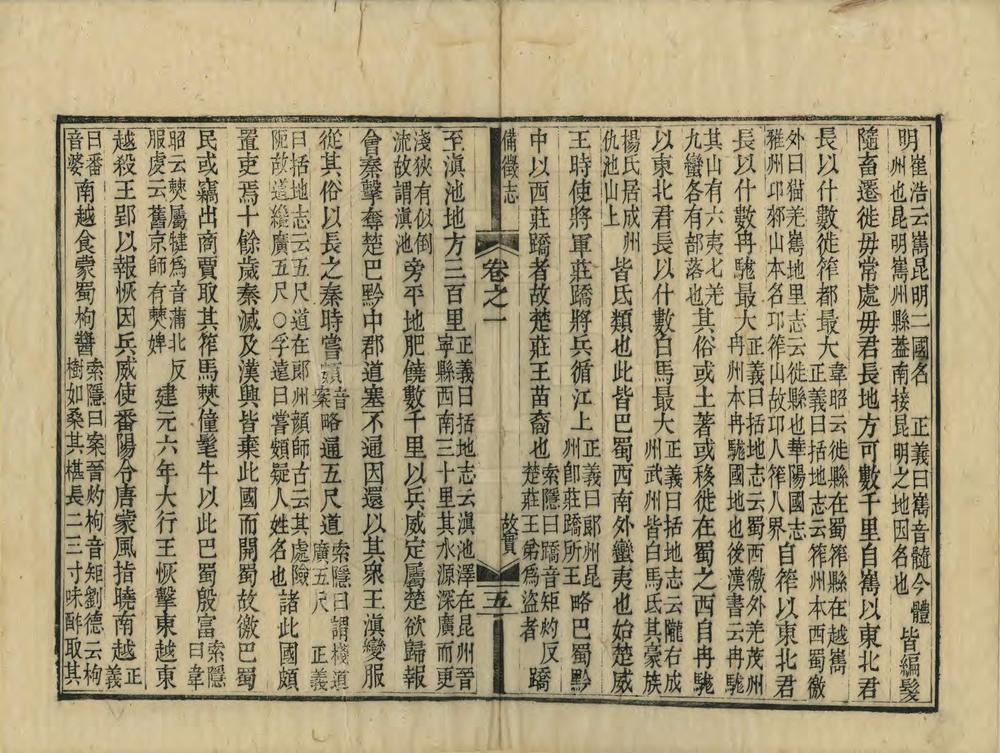 明崔浩云嶲昆明二國名　正義曰嶲音髓今體
州也昆明嶲州縣葢南接昆明之地因名也皆編髮
隨畜遷徙毋常處毋君長地方可數千里自嶲以東北君
長以什數徙筰都最大韋昭云徙縣在蜀筰縣在越嶲
正義曰括地志云筰州本西蜀徼
外曰猫羌嶲地里志云徙縣也華陽國志
雅州邛郲山本名邛筰山故邛人筰人界自筰以東北君
長以什數冉駹最大正義曰括地志云蜀西徼外羌茂州
冉州本冉駹國地也後漢書云冉駹
其山有六夷七羌
九蠻各有部落也其俗或土著或移徙在蜀之西自冉駹
以東北君長以什數白馬最大正義曰括地志云隴右成
州武州皆白馬氐其豪族
楊氏居成州
仇池山上皆氐類也此皆巴蜀西南外蠻夷也始楚威
王時使將軍莊蹻將兵循江上正義曰郎州昆
州卽莊蹻所王略巴蜀黔
中以西莊蹻者故楚莊王苗裔也索隱曰蹻音矩灼反
楚莊王弟爲盜者蹻
備徵志　卷之一　故實　五
至滇池地方三百里正義曰括地志云滇池澤在昆州晉
寧縣西南三十里其水源深廣而更
淺狹有似倒
流故謂滇池旁平地肥饒數千里以兵威定屬楚欲歸報
會秦擊奪楚巴黔中郡道塞不通因還以其衆王滇變服
從其俗以長之秦時嘗頞音
案略通五尺道索隱曰謂棧道
廣五尺　正義
曰括地志云五尺道在郎州顏師古云其處險
阨故道纔廣五尺○孚遠曰嘗頞疑人姓名也諸此國頗
置吏焉十餘歲秦滅及漢興皆棄此國而開蜀故徼巴蜀
民或竊出商賈取其筰馬僰僮髦牛以此巴蜀殷富索隱
曰韋
昭云僰屬犍爲音蒲北反
服虔云舊京師有僰婢建元六年大行王恢擊東越東
越殺王郢以報恢因兵威使番陽令唐蒙風指曉南越正
義
曰番
音婆南越食蒙蜀枸醬索隱曰案晉灼枸音矩劉德云枸
樹如桑其椹長二三寸味酢取其